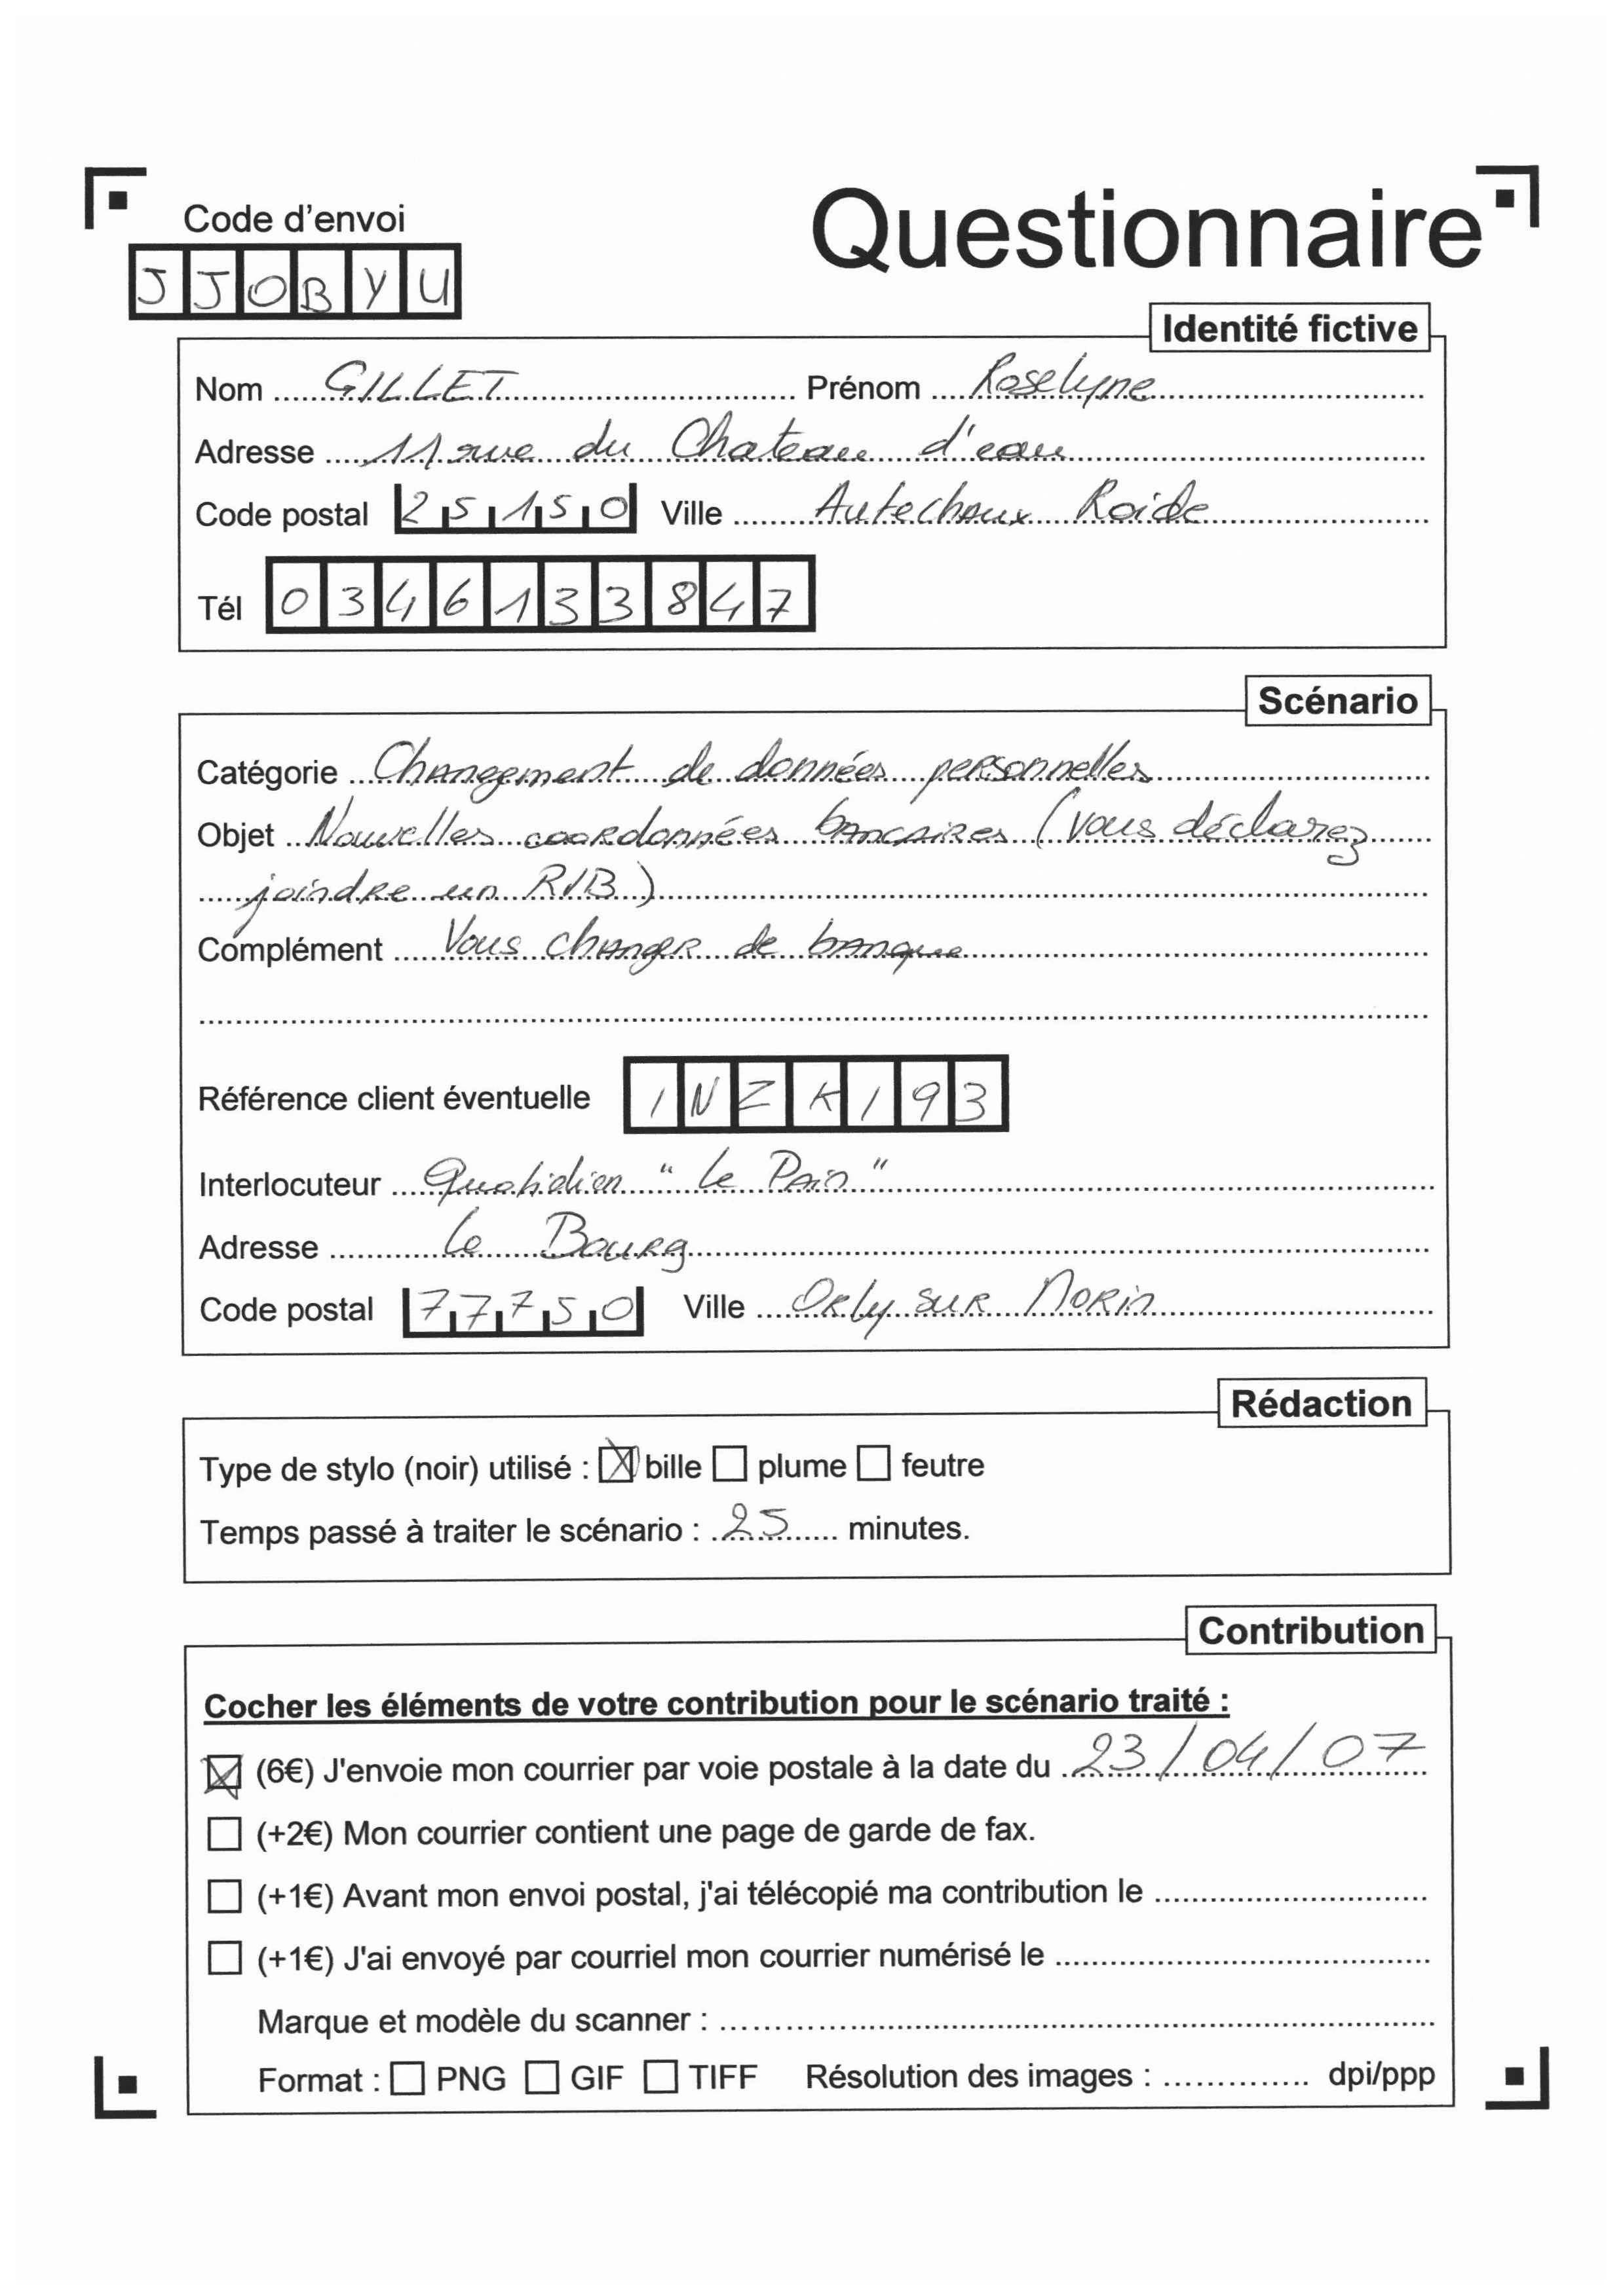 Code d'envoi
Questionnaire
JJOBYU
Identité fictive
Nom GILLET Prénom Roselyne
Adresse 11 rue du Chateau d'eau
Code postal 25150 Ville Autechaux Roide
Tél 0346133847
Scénario
Catégorie Changement de données personnelles
Objet Nouvelles coordonnées bancaires (vous déclarez
joindre un RIB)
Complément Vous changer de banque
Référence client éventuelle INZKI93
Interlocuteur Quotidien "Le Pain"
Adresse Le Bourg
Code postal 77750 Ville Orly sur Morin
Rédaction
Type de stylo (noir) utilisé : ☒ bille ☐ plume ☐ feutre
Temps passé à traiter le scénario : 25 minutes.
Contribution
Cocher les éléments de votre contribution pour le scénario traité :
☒ (6€) J'envoie mon courrier par voie postale à la date du 23/04/07
☐ (+2€) Mon courrier contient une page de garde de fax.
☐ (+1€) Avant mon envoi postal, j'ai télécopié ma contribution le
☐ (+1€) J'ai envoyé par courriel mon courrier numérisé le
Marque et modèle du scanner :
Format : ☐ PNG ☐ GIF ☐ TIFF Résolution des images : dpi/ppp